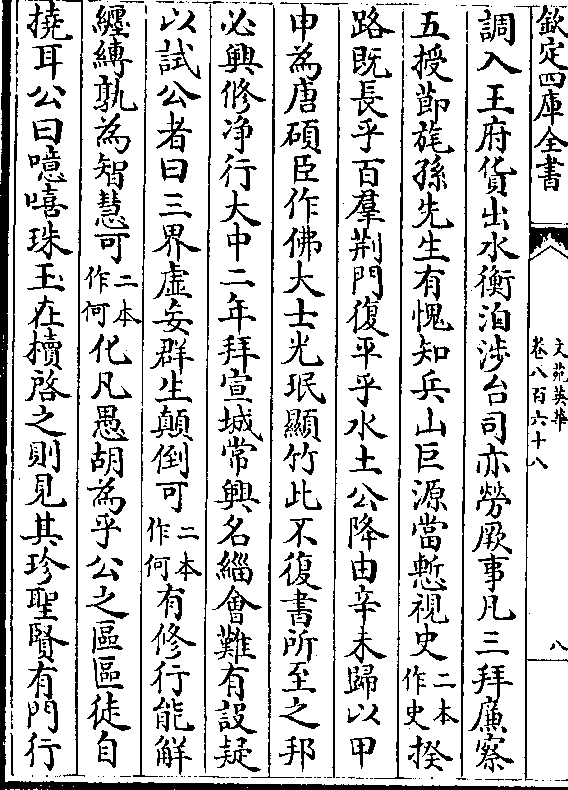 欽定四庫全書
文苑英華
卷八百六十八
八
調入王府貨出水衡洎涉台司亦勞厥事凡三拜廉察
五授節旄孫先生有愧知兵山巨源當慙視史二本作史揆
路既長乎百羣荆門復平乎水土公降由辛未歸以甲
申為唐碩臣作佛大士光珉顯竹此不復書所至之邦
必興修净行大中二年拜宣城常興名緇會難有設疑
以試公者曰三界虛妄群生顛倒可二本作何有修行能解
纏縛孰為智慧可二本作何化凡愚胡為乎公之區區徒自
撓耳公曰噫嘻珠玉在櫝啓之則見其珍聖賢有門行